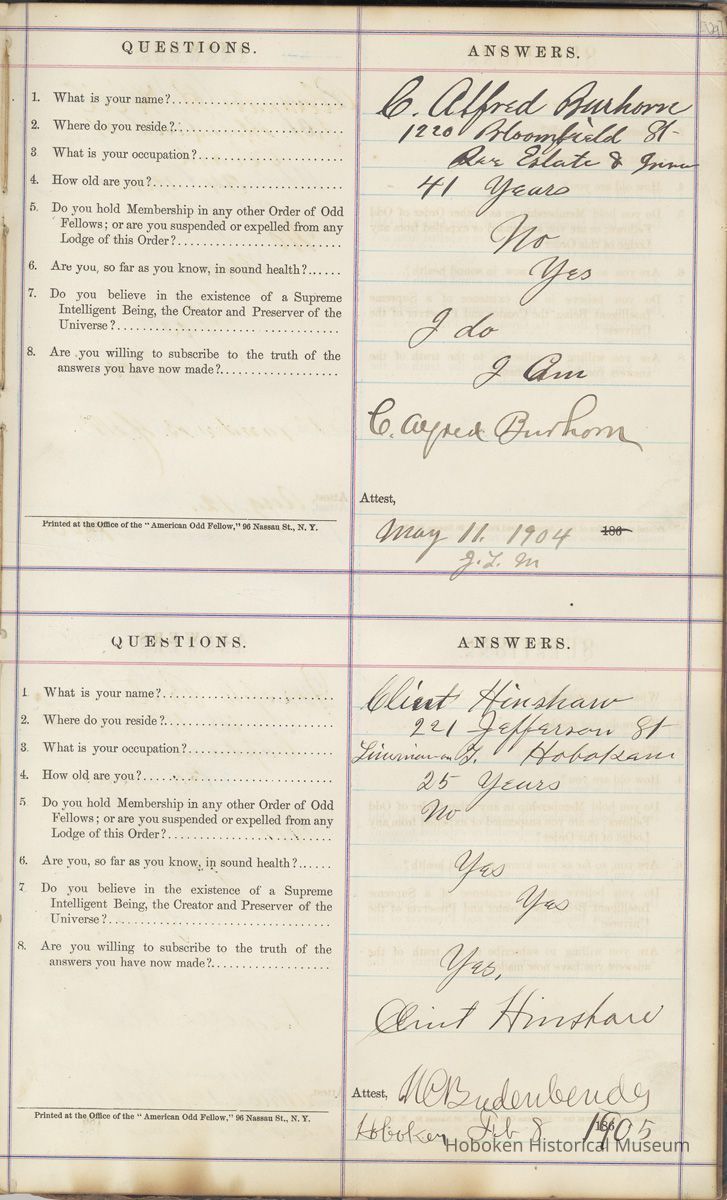 QUESTIONS. ANSWERS.
1. What is your name?.......................... C. Alfred Burhorn
2. Where do you reside?......................... 1220 Bloomfield St
3 What is your occupation?...................... Estate &
4. How old are you?............................. 41 Years
5. Do you hold Membership in any other Order of Odd
Fellows; or are you suspended or expelled from any
Lodge of this Order?.......................... No
6. Are you, so far as you know, in sound health?...... Yes
7. Do you believe in the existence of a Supreme
Intelligent Being, the Creator and Preserver of the
Universe?.................................... I do
8. Are you willing to subscribe to the truth of the
answers you have now made?................... I Am
C. Alfred Burhorn
Attest,
Printed at the Office of the "American Odd Fellow," 96 Nassau St., N. Y.
May 11. 1904 186
J. L. M
QUESTIONS. ANSWERS.
1 What is your name?.......................... Clint Hinshaw
2. Where do you reside?......................... 221 Jefferson St
3. What is your occupation?...................... Hoboken
4. How old are you?............................. 25 Years
5. Do you hold Membership in any other Order of Odd
Fellows; or are you suspended or expelled from any
Lodge of this Order?.......................... No
6. Are you, so far as you know, in sound health?...... Yes
7 Do you believe in the existence of a Supreme
Intelligent Being, the Creator and Preserver of the
Universe?.................................... Yes
8. Are you willing to subscribe to the truth of the
answers you have now made?................... Yes,
Clint Hinshaw
Attest,
Printed at the Office of the "American Odd Fellow," 96 Nassau St., N. Y.
Hoboken Feb 8 1905
Hoboken Historical Museum